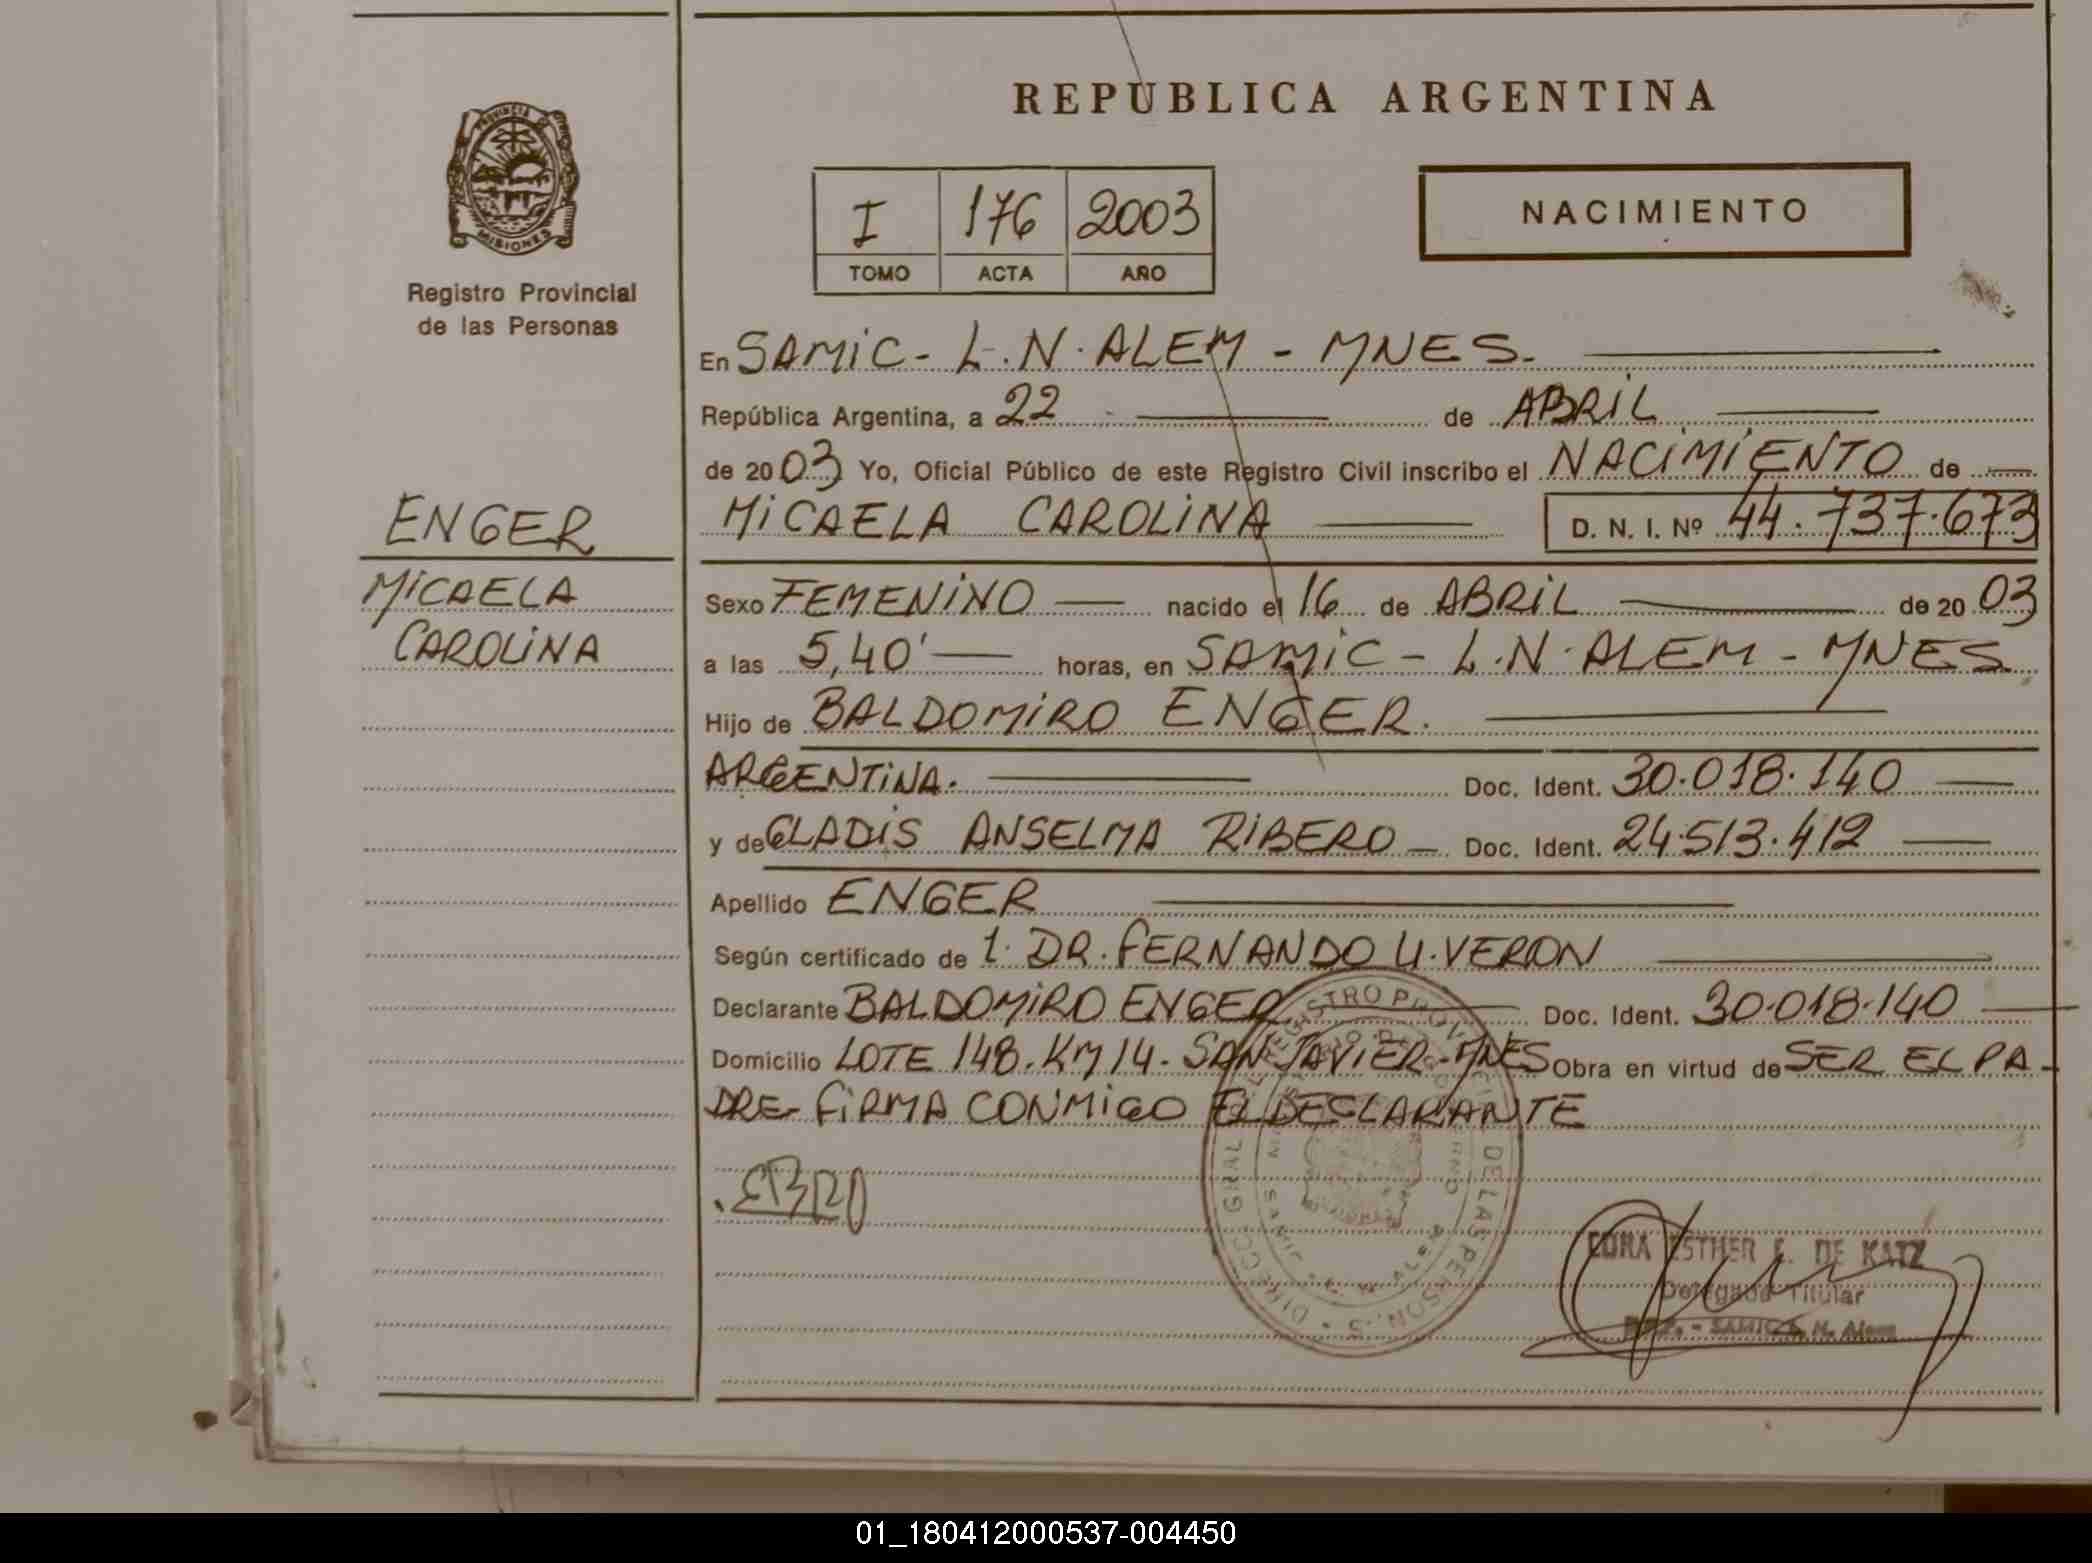 REPUBLICA ARGENTINA
PROVINCIA DE
MISIONES
Registro Provincial
de las Personas
I 176 2003
TOMO ACTA AÑO
NACIMIENTO
En SAMIC - L.N. ALEM - MNES.
República Argentina, a 22 de ABRIL
de 2003 Yo, Oficial Público de este Registro Civil inscribo el NACIMIENTO de
ENGER
MICAELA CAROLINA D. N. I. Nº 44.737.673
MICAELA
CAROLINA
Sexo FEMENINO nacido el 16 de ABRIL de 2003
a las 5,40' horas, en SAMIC - L.N. ALEM - MNES
Hijo de BALDOMIRO ENGER.
ARGENTINA. Doc. Ident. 30.018.140
y de GLADIS ANSELMA RIBERO Doc. Ident. 24.513.412
Apellido ENGER
Según certificado de 1. DR. FERNANDO U. VERON
Declarante BALDOMIRO ENGER Doc. Ident. 30.018.140
Domicilio LOTE 148. KM 14. SAN JAVIER - MNES Obra en virtud de SER EL PA-
DRE- FIRMA CONMIGO EL DECLARANTE
DE LAS PERSON.S
EDNA ESTHER E. DE KATZ
Delegado Titular
SAMIC L. N. Alem
01_180412000537-004450